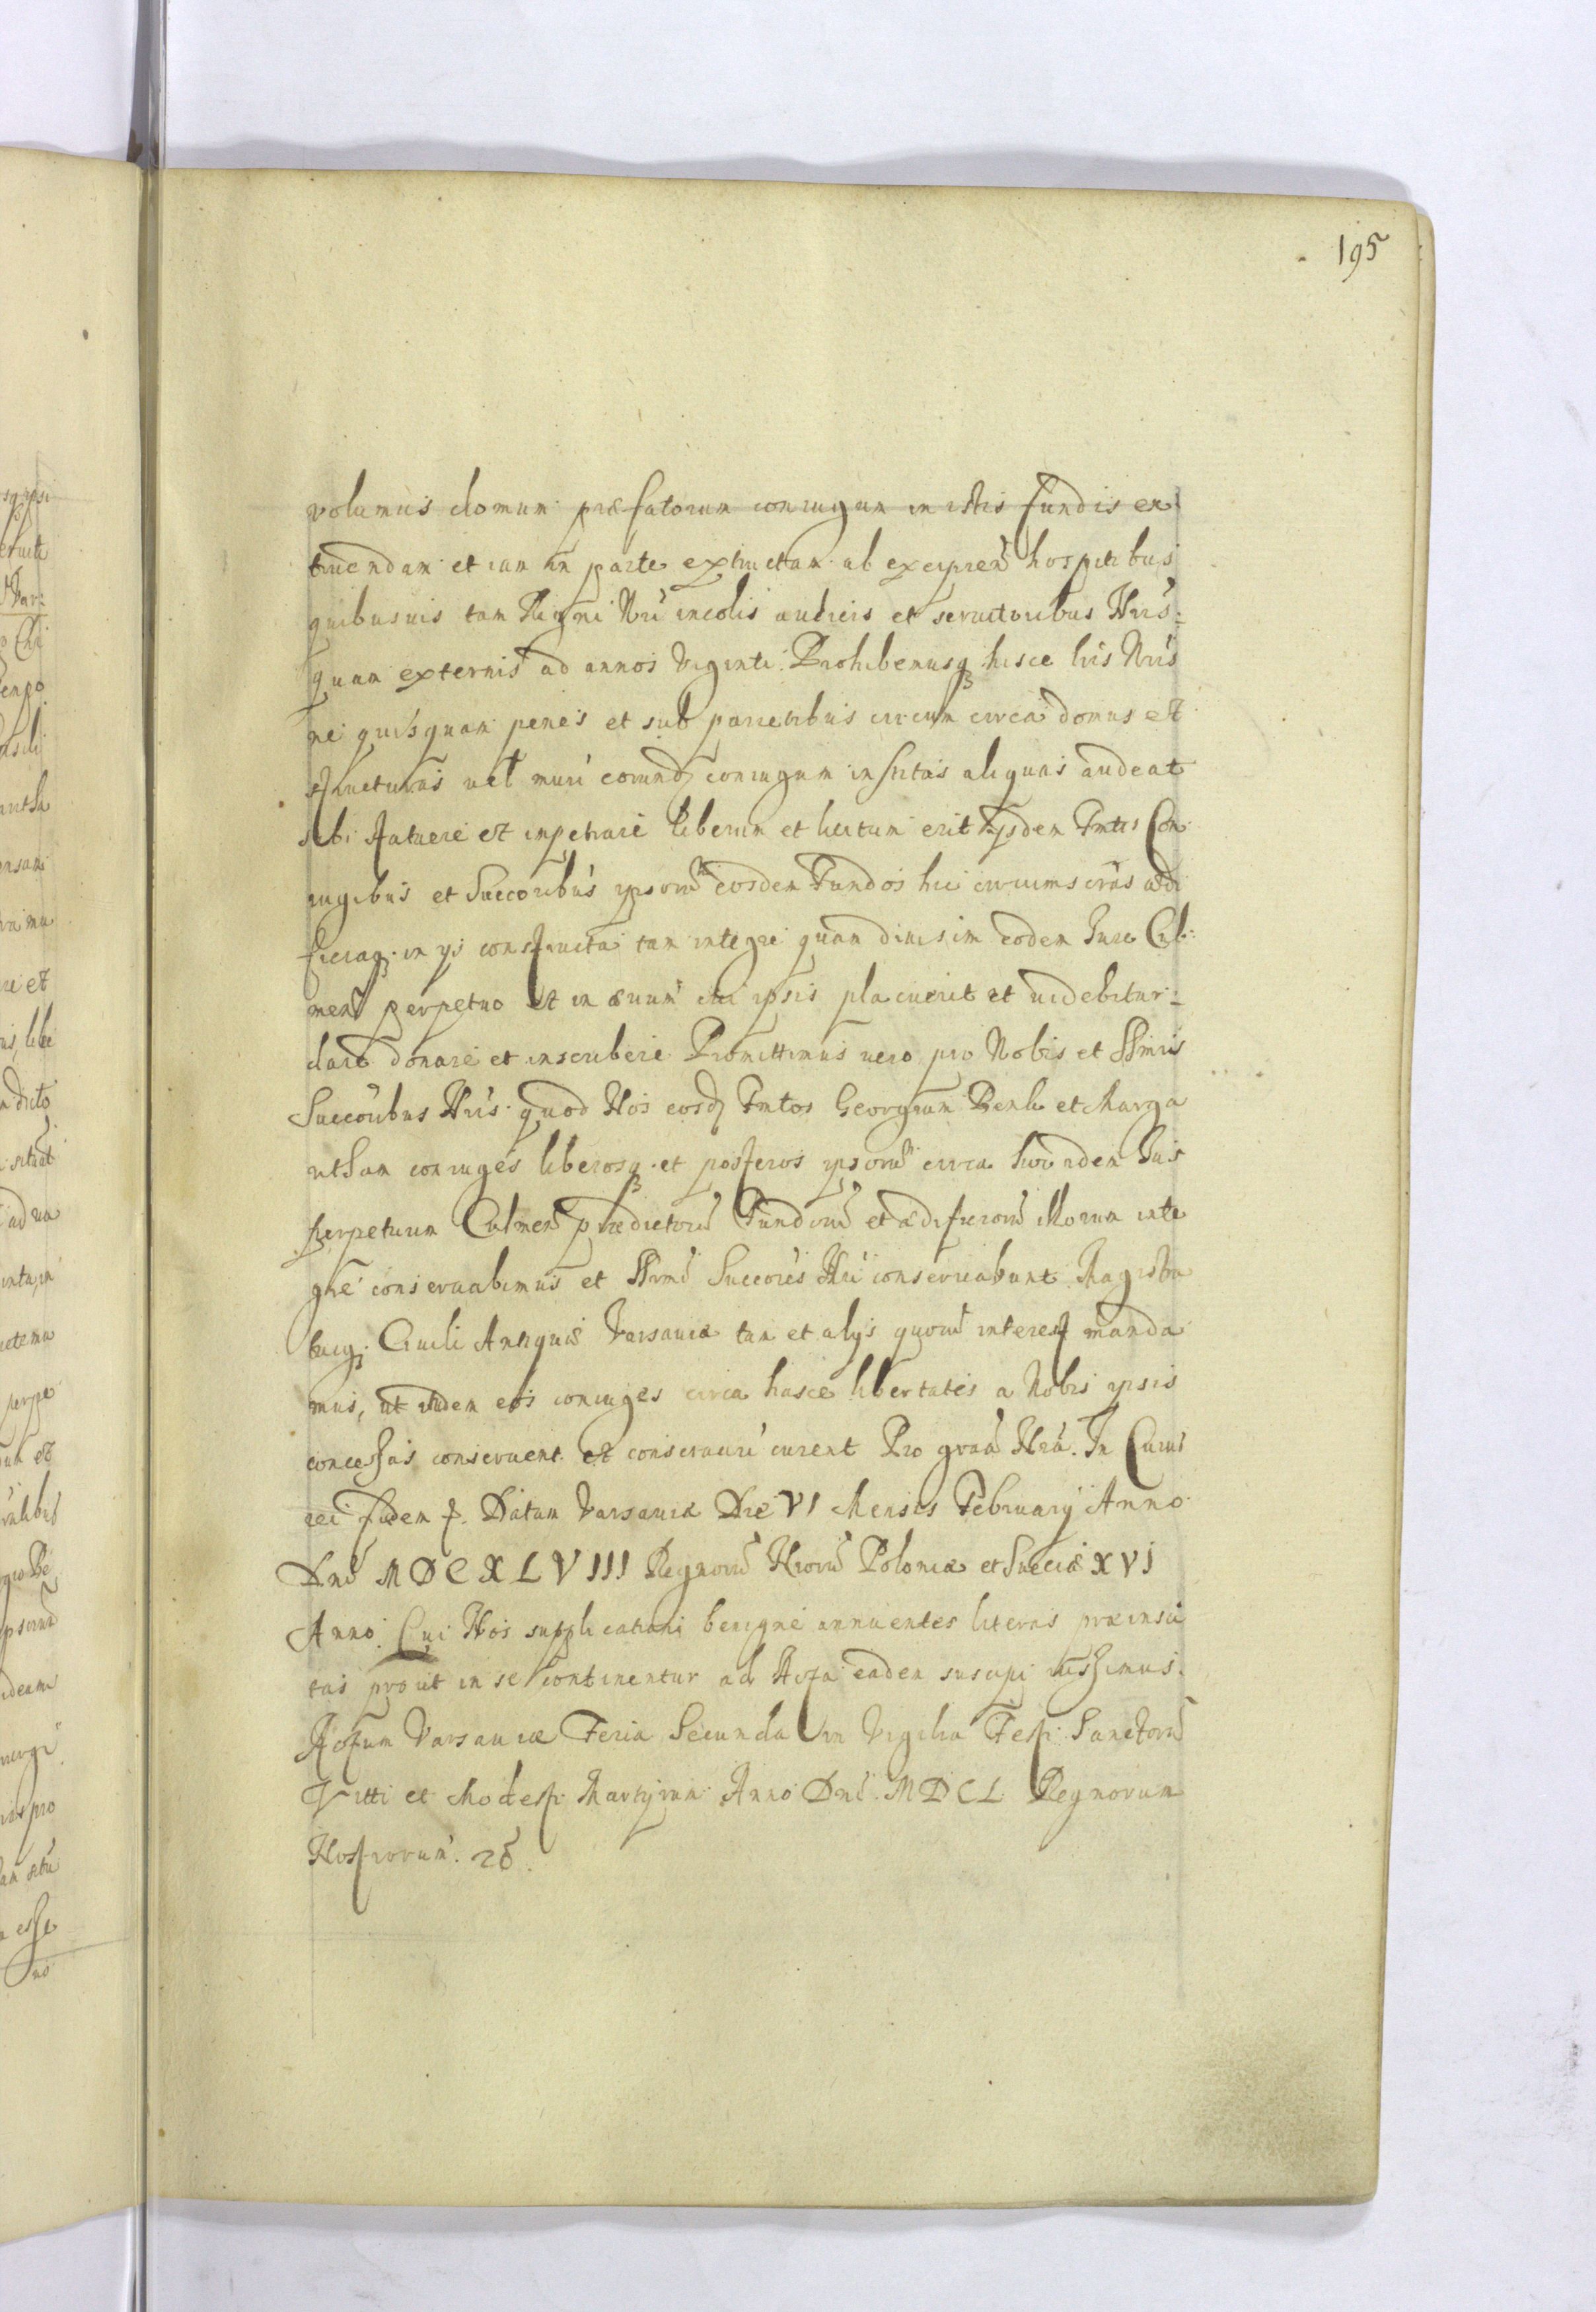 195
volumus domum præfatorum coniugum in istis fundis ex
truendam et iam in parte extructam ab excipien̄ hospitibus
quibusuis tam Regni Nri incolis aulicis et seruitoribus Nris
quam externis ad annos Viginti. Prohibemusq hisce lris Nris
ne quisquam penes et sub parietibus circum circa domus et
structuras uel muri eorund coniugum insitas aliquas audeat
sibi statuere et impetrare liberum et licitum erit ijsdem Pmtis Con
iugibus et Succoribus ipsorū eosdem Fundos hic circumscrās ædi
ficiaq in ijs constructa tam integre quam diuisim eodem Iure Cul
men̄ perpetuo et in æuum cui ipsis placuerit et uidebitur
dare donare et inscribere Promittimus uero pro Nobis et Ssmis
Succoribus Nris quod Nos eosd Pmtos Georgium Benk et Marga
retham coniuges liberosq et posteros ipsorū circa Ius
perpetuum Culmen̄ prædictorū Fundorū et ædificiorū illorum inte
gre conseruabimus et Srmi Succores Nri conseruabunt Magistra
tuiq Ciuili Antiquæ Varsauiæ tam et alijs quorū interest manda
mus, ut eos coniuges circa hasce libertates a Nobis ipsis
concessas conseruent et conseruari curent Pro graā Nrā. In Cuius
rei fidem p. Datum Varsauiæ Die VI Mensis February Anno
Dni MDCXLVIII Regnorū Nrorū Poloniæ et Sueciæ XVI
Anno. Cui Nos supplicationi benigne annuentes literas præinser
tas prout in se continentur ad Acta eadem suscipi iussimus.
Actum Varsauiæ Feria Secunda in Vigilia Festi Sanctorū
Vitti et Modesti Martyrum Anno Dni. MDCL Regnorum
Nostrorum. 2δ.